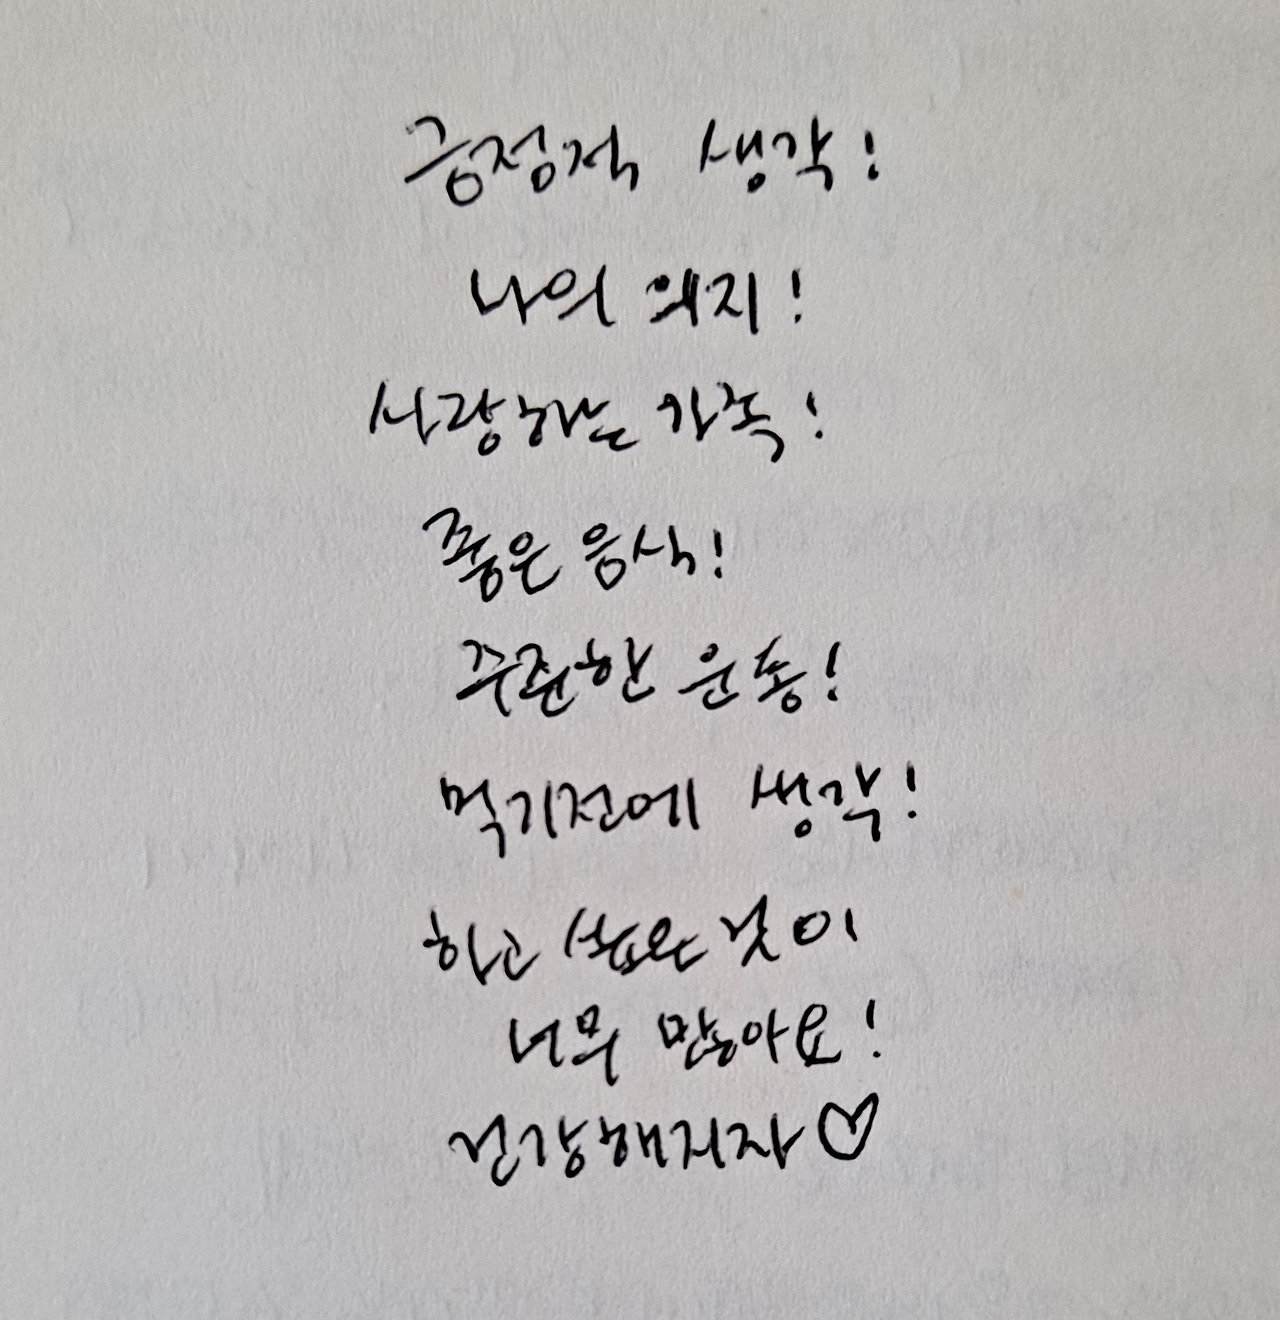 긍정적 생각!
나의 의지!
사랑하는 가족!
좋은 음식!
꾸준한 운동!
먹기전에 생각!
하고 싶은 것이
너무 많아요!
건강해지자♡